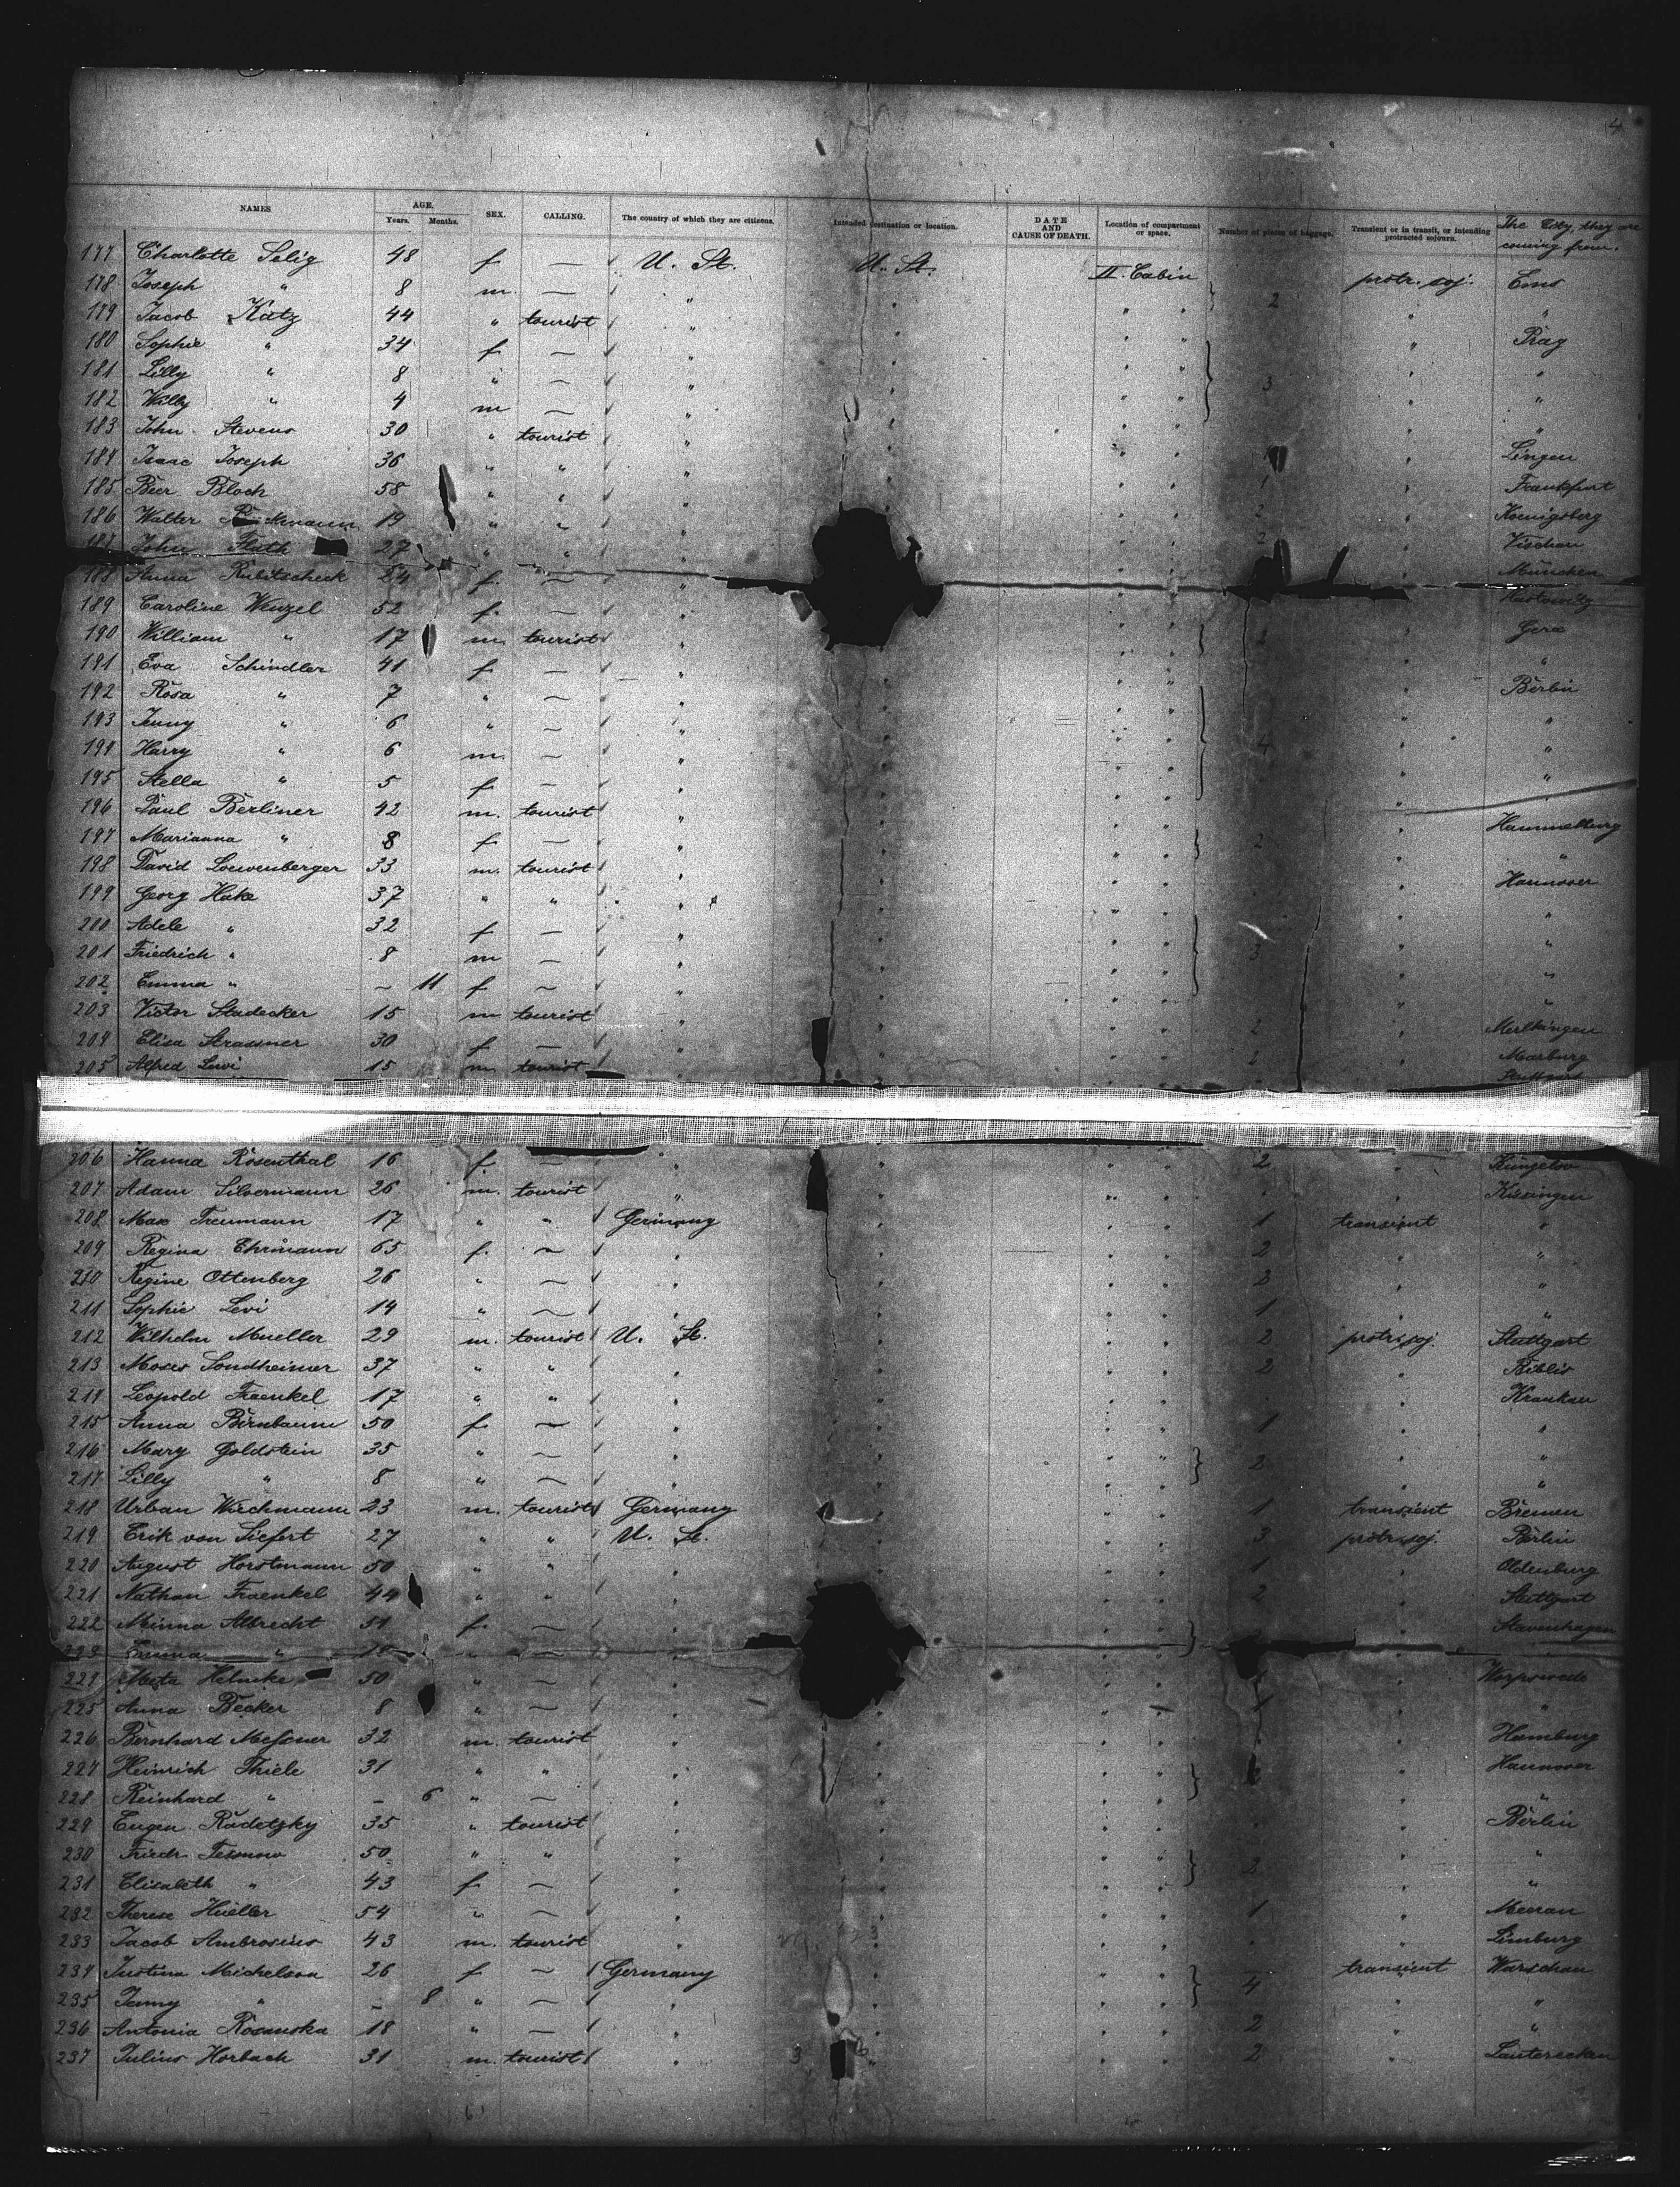 4
NAMES AGE. Years. Months. SEX. CALLING. The country of which they are citizens. Intended destination or location. DATE AND CAUSE OF DEATH. Location of compartment or space. Number of pieces of baggage. Transient or in transit, or intending protracted sojourn. The City they are coming from.
177 Charlotte Selig 48 f — U. St. U. St. II. Cabin protr. soj. Ems
178 Joseph " 8 m. — " " " " 2 " "
179 Jacob Katz 44 " tourist " " " " " Prag
180 Sophie " 34 f — " " " " " "
181 Lilly " 8 " — " " " " 3 " "
182 Willy " 4 m — " " " " " "
183 John Stevens 30 " tourist " " " " " Lingen
184 Isaac Joseph 36 " " " " " " " Frankfurt
185 Beer Bloch 58 " " " " " " 1 " Koenigsberg
186 Walter 19 " " " " " " 2 " Vischau
187 John Fluth 27 " " " " " " 2 " München
188 Anna Rubitscheck 24 f. — " " " "
189 Caroline Wenzel 52 f. — " " " " " Gera
190 William " 17 m. tourist " " " " " "
191 Eva Schindler 41 f — " " " " " Berlin
192 Rosa " 7 " — " " " " " "
193 Jenny " 6 " — " " " " " "
194 Harry " 6 m. — " " " " 4 " "
195 Stella " 5 f — " " " " " "
196 Paul Berliner 42 m. tourist " " " " " Hammelburg
197 Marianna " 8 f — " " " " 2 " "
198 David Loewenberger 33 m. tourist " " " " " Hannover
199 Georg Hake 37 " " " " " " " "
200 Adele " 32 f — " " " " " "
201 Friedrich " 8 m — " " " " 3 " "
202 Emma " — 11 f — " " " " " "
203 Victor Stadecker 15 m tourist " " " " 2 "
204 Elisa Strassner 30 f — " " " " 2 " Marburg
205 Alfred Levi 15 m. tourist Stuttgart
206 Hanna Rosenthal 16 f — " " " " 2 "
207 Adam Silvermann 26 m. tourist " " " " " " Kissingen
208 Max Treumann 17 " " Germany " " " 1 transient "
209 Regina Ehrmann 65 f. — " " " " 2 " "
210 Regine Ottenberg 26 " — " " " " 2 " "
211 Sophie Levi 14 " — " " " " 1 " "
212 Wilhelm Mueller 29 m. tourist U. St. " " " 2 protr. soj. Stuttgart
213 Moses Sondheimer 37 " " " " " " 2 " Biblis
214 Leopold Fraenkel 17 " " " " " " " Kraukau
215 Anna Birnbaum 50 f — " " " " 1 " "
216 Mary Goldstein 35 " — " " " " 2 " "
217 Lilly " 8 " — " " " " " "
218 Urban Wiechmann 23 m. tourist Germany " " " 1 transient Bremen
219 Erik von Siefert 27 " " U. St. " " " 3 protr. soj. Berlin
220 August Horstmann 50 " " " " " " 1 " Oldenburg
221 Nathan Fraenkel 44 " " " " " " 2 " Stuttgart
222 Minna Albrecht 51 f. — " " " " " Stavenhagen
223 Emma " " — " " " "
224 Meta Helmke 50 " — " " " " " Worpswede
225 Anna Becker 8 " — " " " " 1 " "
226 Bernhard Messner 32 m. tourist " " " " " Hamburg
227 Heinrich Thiele 31 " " " " " " " Hannover
228 Reinhard " — 6 " — " " " " " "
229 Eugen Radetzky 35 " tourist " " " " " " Berlin
230 Friedr. Tessnow 50 " " " " " " 2 " "
231 Elisabeth " 43 f — " " " " " "
232 Therese Hueller 54 " — " " " " 1 " Meeran
233 Jacob Ambrosius 43 m. tourist " " " " " " Limburg
234 Justina Michelson 26 f — Germany " " " 4 transient Warschau
235 Jenny " — 8 " — " " " " " "
236 Antonia Rosanska 18 " — " " " " 2 " "
237 Julius Horbach 31 m. tourist " " " " 2 " Lauterecken